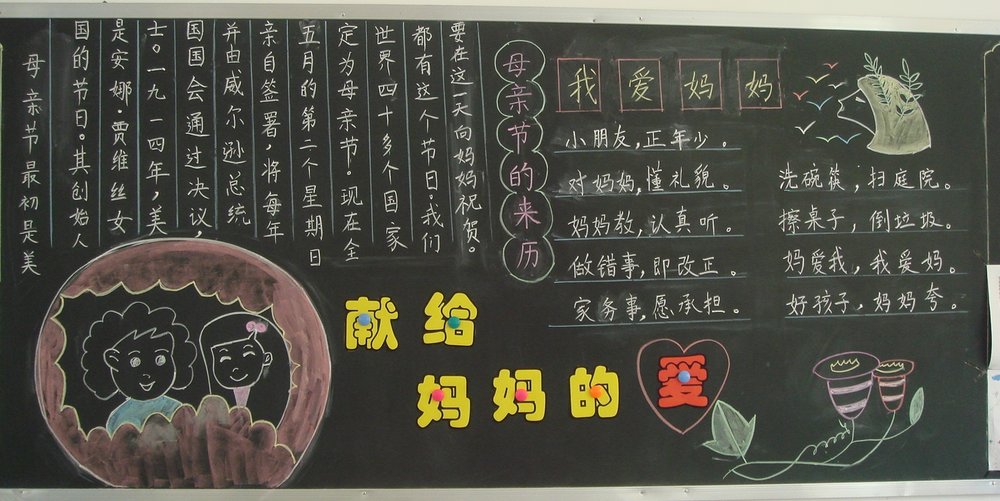 母亲节的来历
母亲节最初是美
国的节日。其创始人
是安娜·贾维丝女
士。一九一四年，美
国国会通过决议，
并由威尔逊总统
亲自签署，将每年
五月的第二个星期日
定为母亲节。现在全
世界四十多个国家
都有这个节日。我们
要在这一天向妈妈祝贺。
我爱妈妈
小朋友，正年少。
对妈妈，懂礼貌。
妈妈教，认真听。
做错事，即改正。
家务事，愿承担。
洗碗筷，扫庭院。
擦桌子，倒垃圾。
妈爱我，我爱妈。
好孩子，妈妈夸。
献给
妈妈的爱